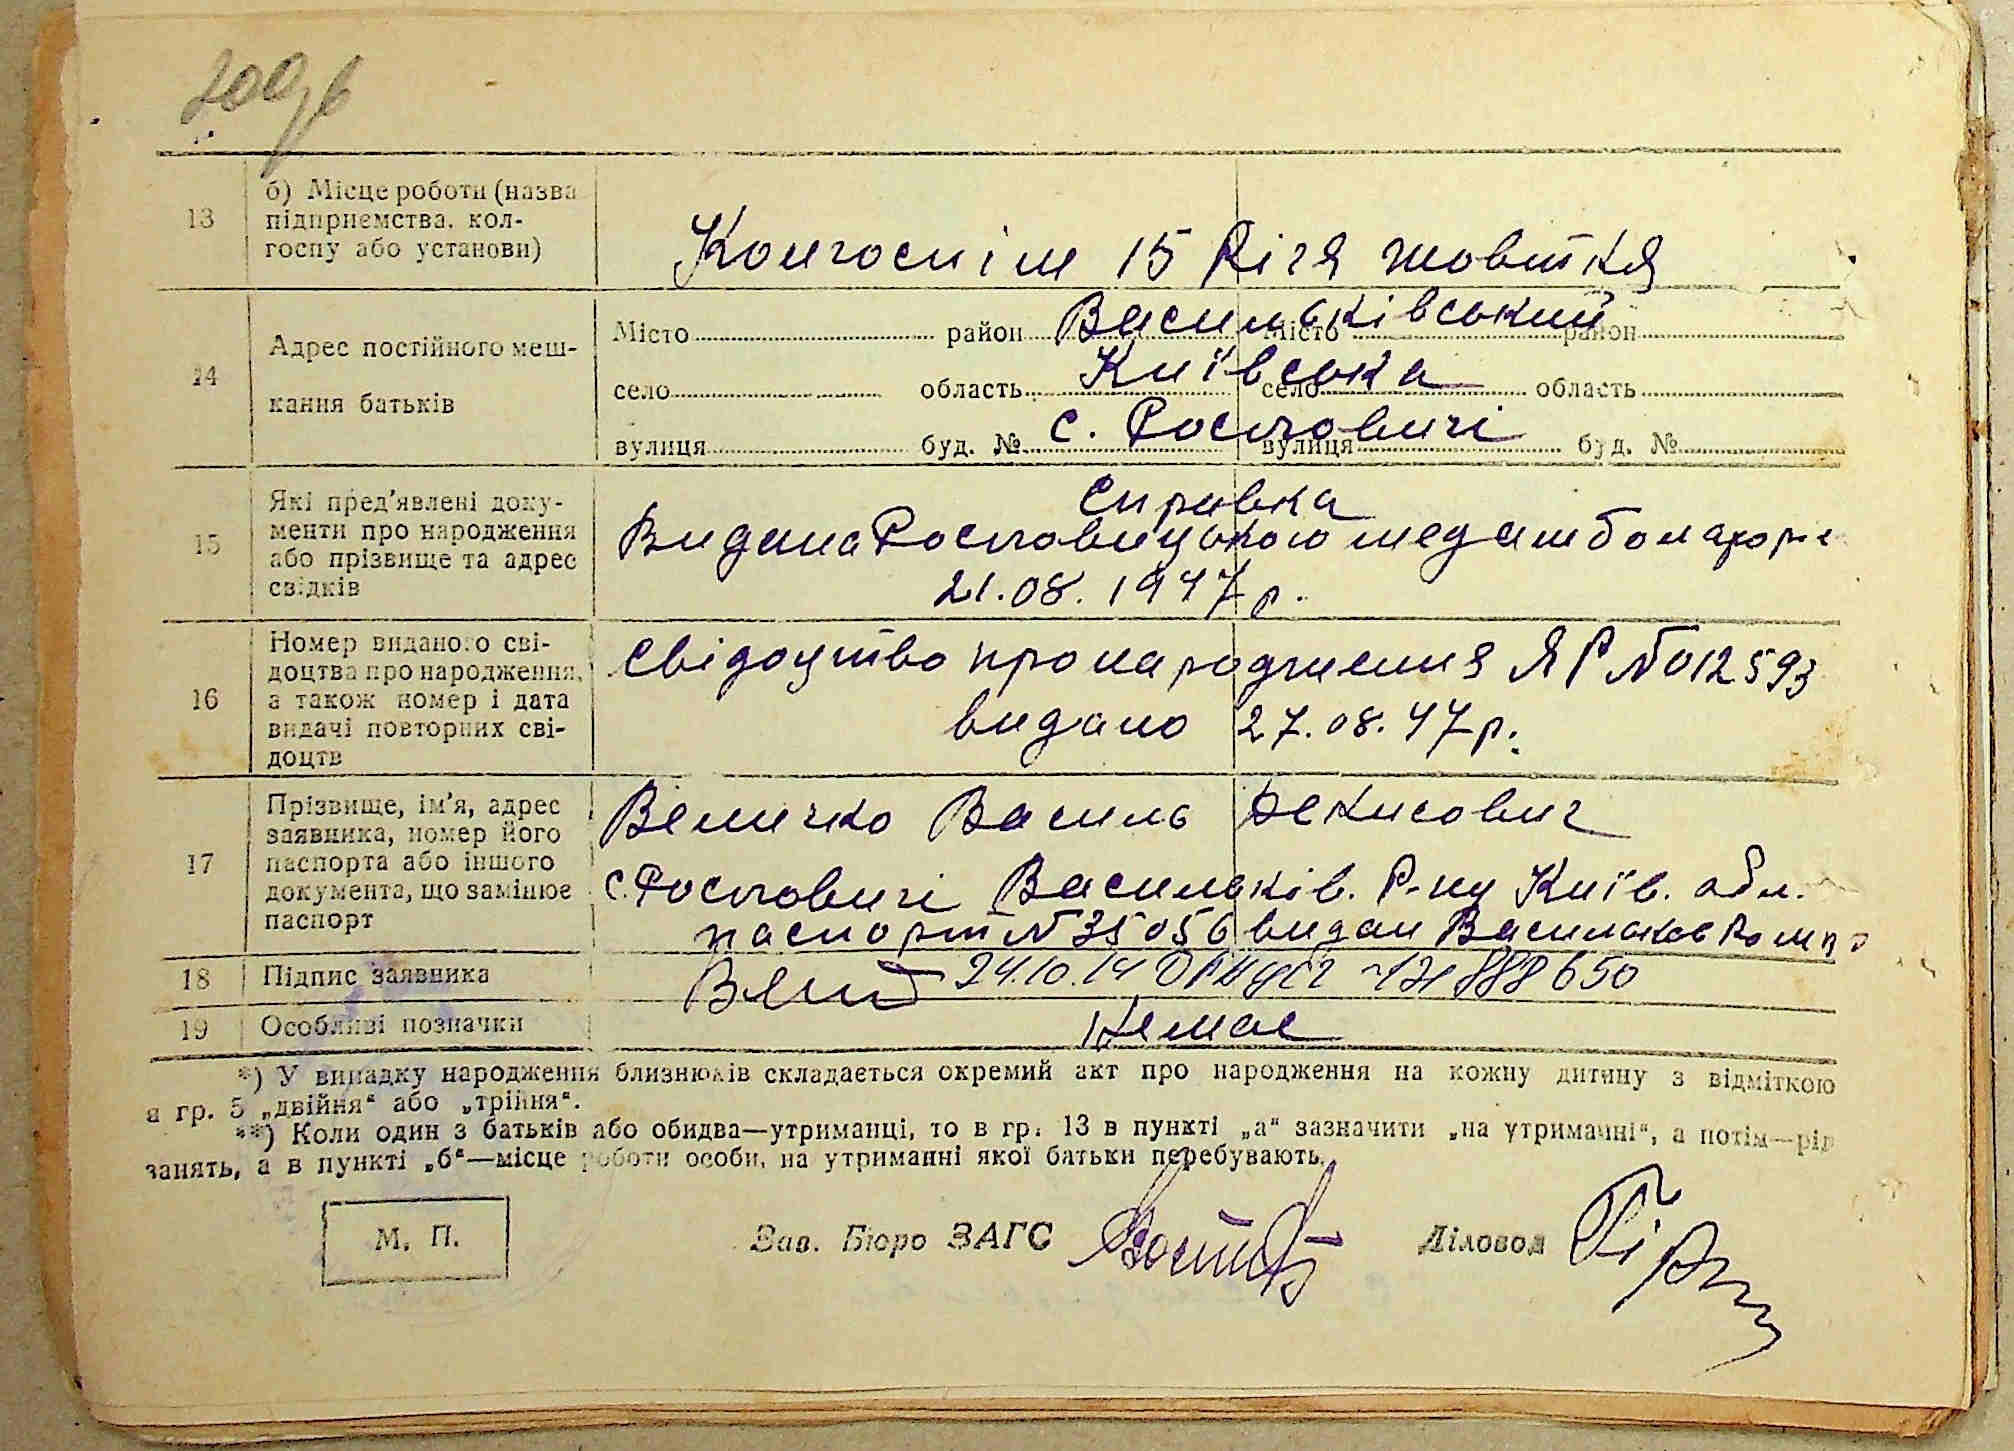 13 б) Місце роботи (назва підприємства, колгоспу або установи) Колгоспім 15 Річя жовтня
14 Адрес постійного мешкання батьків
Місто район Васильківський Місто район
село область Київська село область
вулиця буд. № с. Рославичі вулиця буд. №
15 Які пред'явлені документи про народження або прізвище та адрес свідків
Справка
Видана Рославицькою медамболаторіє
21.08.1947 р.
16 Номер виданого свідоцтва про народження, а також номер і дата видачі повторних свідоцтв
Свідоцтво про народження ЯР №012593
видано 27.08.47 р.
17 Прізвище, ім'я, адрес заявника, номер його паспорта або іншого документа, що замінює паспорт
Величко Василь Денисович
с. Рославичі Васильків. Р-ну Київ. обл.
паспорт № 35056 видан Васильков
18 Підпис заявника 24.10.14 888650
19 Особливі позначки Немає
*) У випадку народження близнюків складається окремий акт про народження на кожну дитину з відміткою
в гр. 5 „двійня“ або „трійня“.
**) Коли один з батьків або обидва—утриманці, то в гр. 13 в пункті „а“ зазначити „на утриманні“, а потім—рід
занять, а в пункті „б“—місце роботи особи, на утриманні якої батьки перебувають.
М. П. Зав. Бюро ЗАГС Діловод